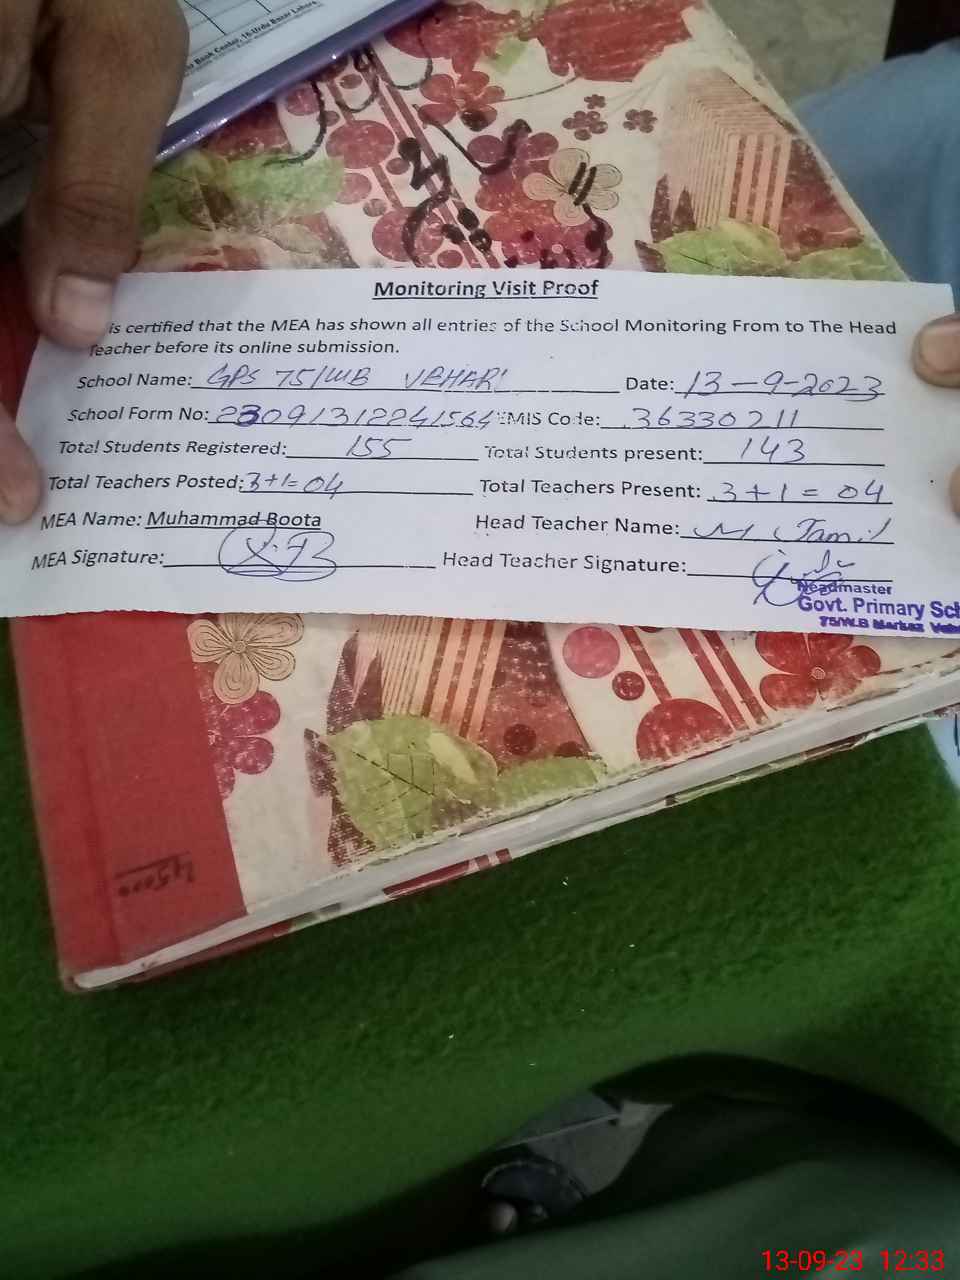 Book Center, 16-Urdu Bazar Lahore
Monitoring Visit Proof
is certified that the MEA has shown all entries of the School Monitoring From to The Head
Teacher before its online submission.
School Name: GPS 75/WB VEHARI Date: 13-9-2023
School Form No: 23091312241564 EMIS Code: 36330211
Total Students Registered: 155 Total Students present: 143
Total Teachers Posted: 3+1=04 Total Teachers Present: 3+1=04
MEA Name: Muhammad Boota Head Teacher Name: M Jamil
MEA Signature: Head Teacher Signature:
Headmaster
Govt. Primary Sch
75/W.B Markaz
45000
13-09-23 12:33